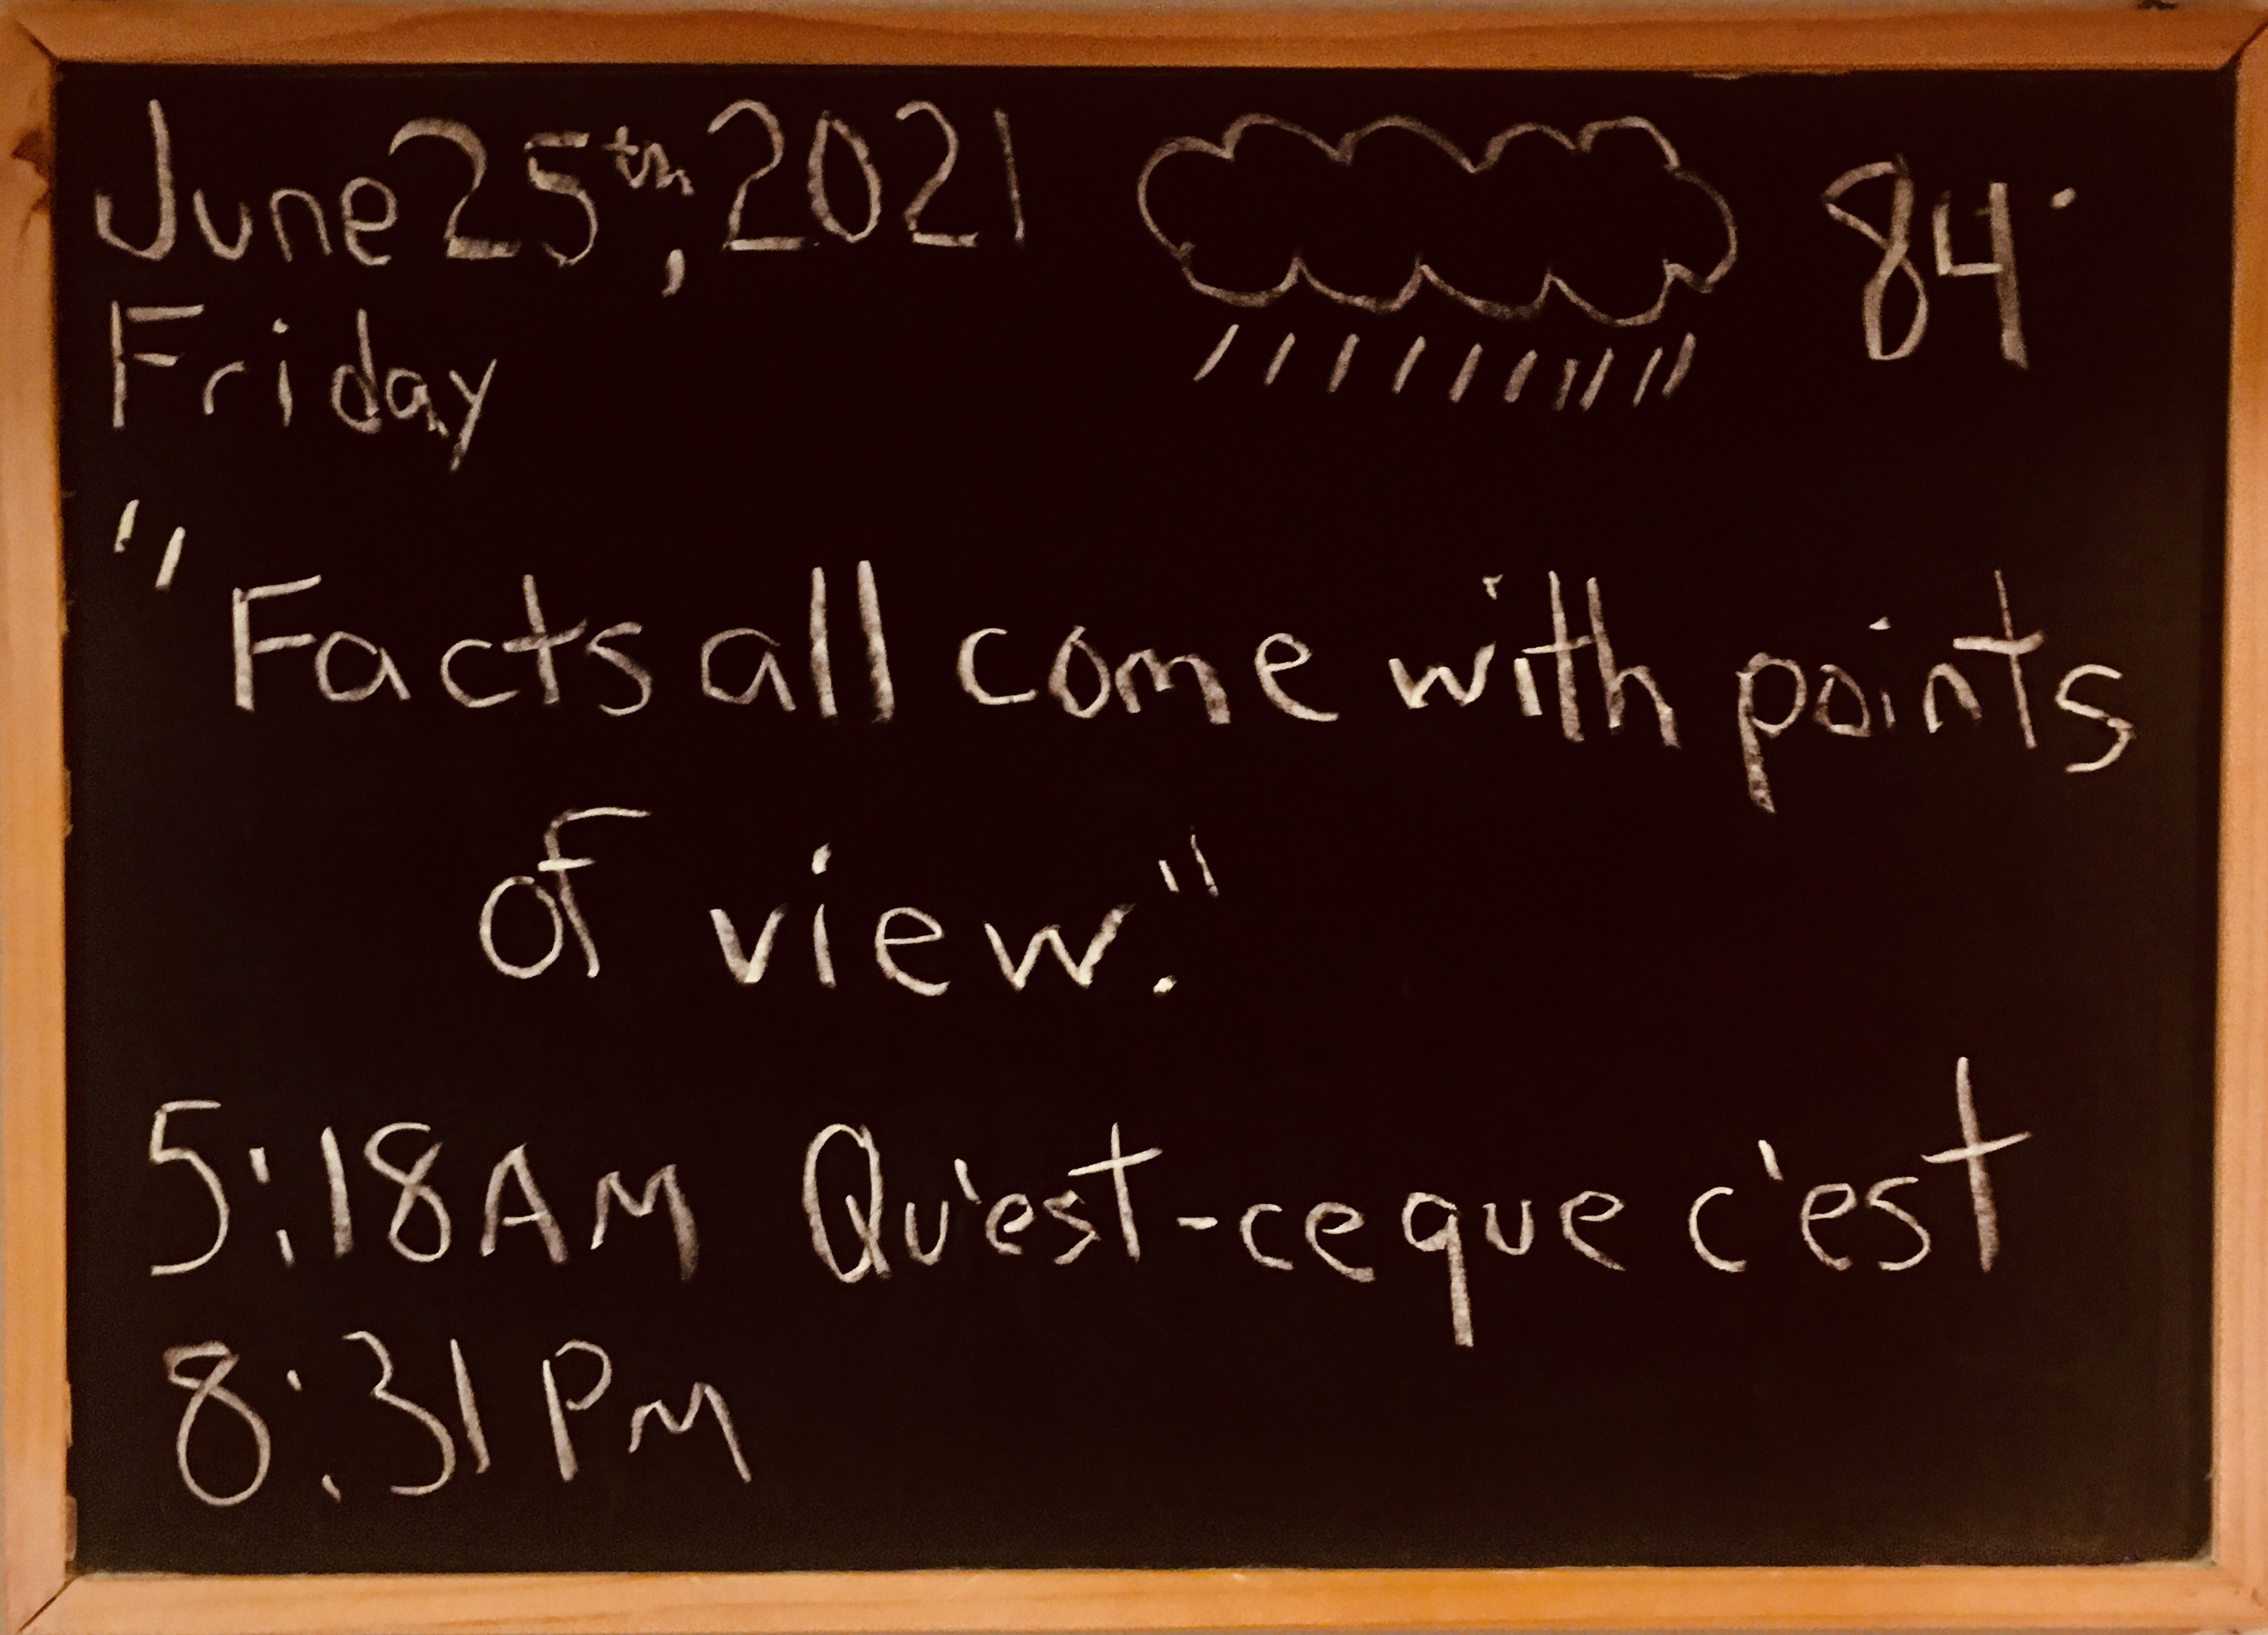 June 25th, 2021 84°
Friday
"Facts all come with points
of view."
5:18AM Qu'est-ce que c'est
8:31PM